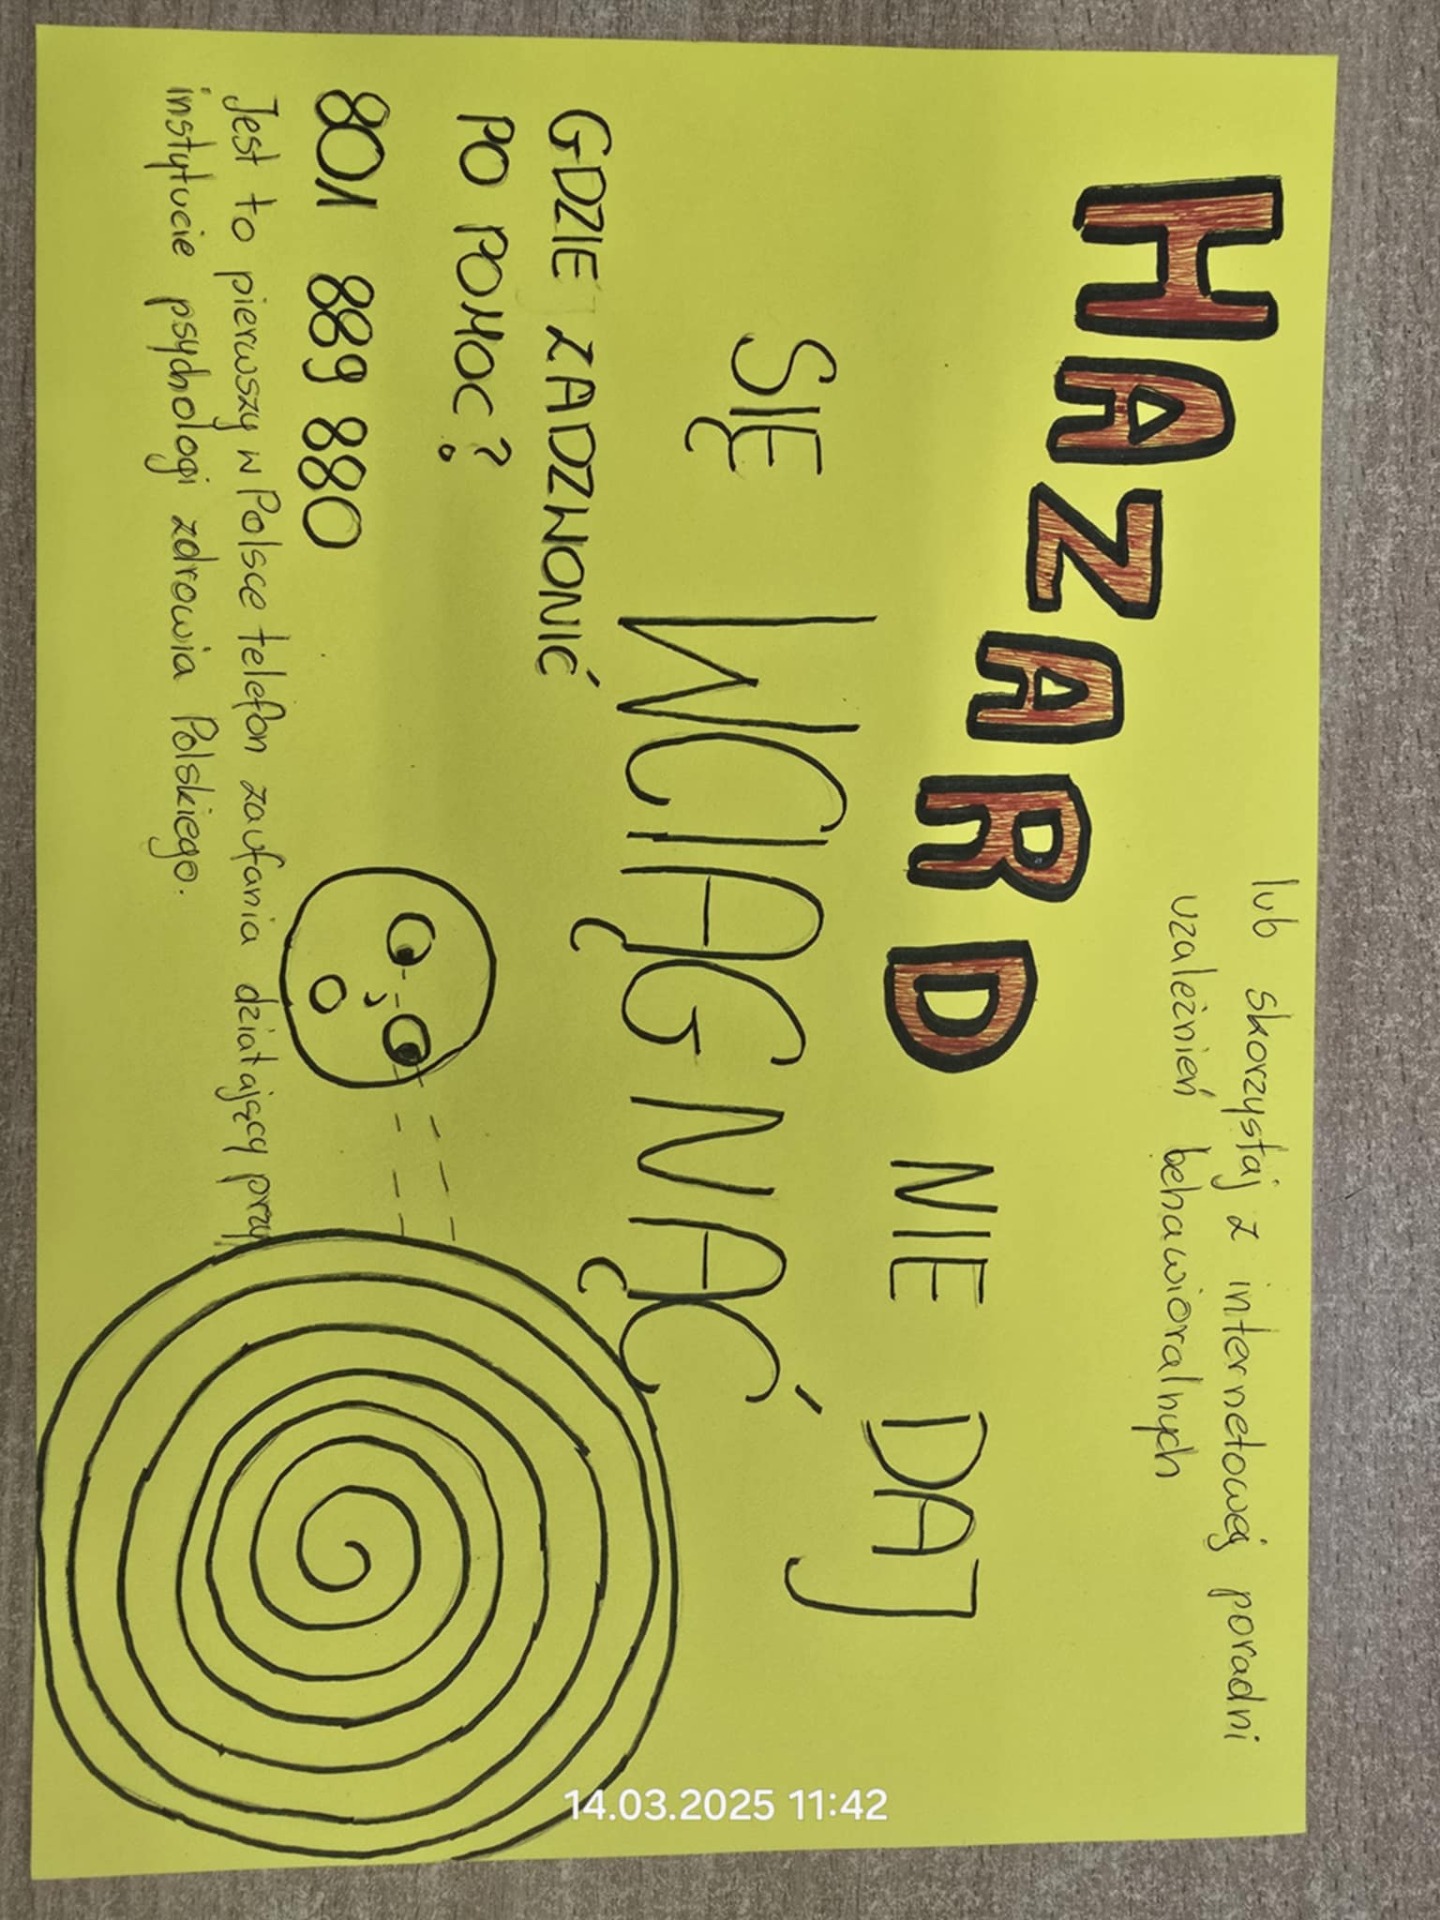 HAZARD NIE DAJ
SIĘ WCIĄGNĄĆ
lub skorzystaj z internetowej poradni
uzależnień behawioralnych
GDZIE ZADZWONIĆ
PO POMOC?
801 889 880
Jest to pierwszy w Polsce telefon zaufania działający przy
instytucie psychologi zdrowia Polskiego.
14.03.2025 11:42